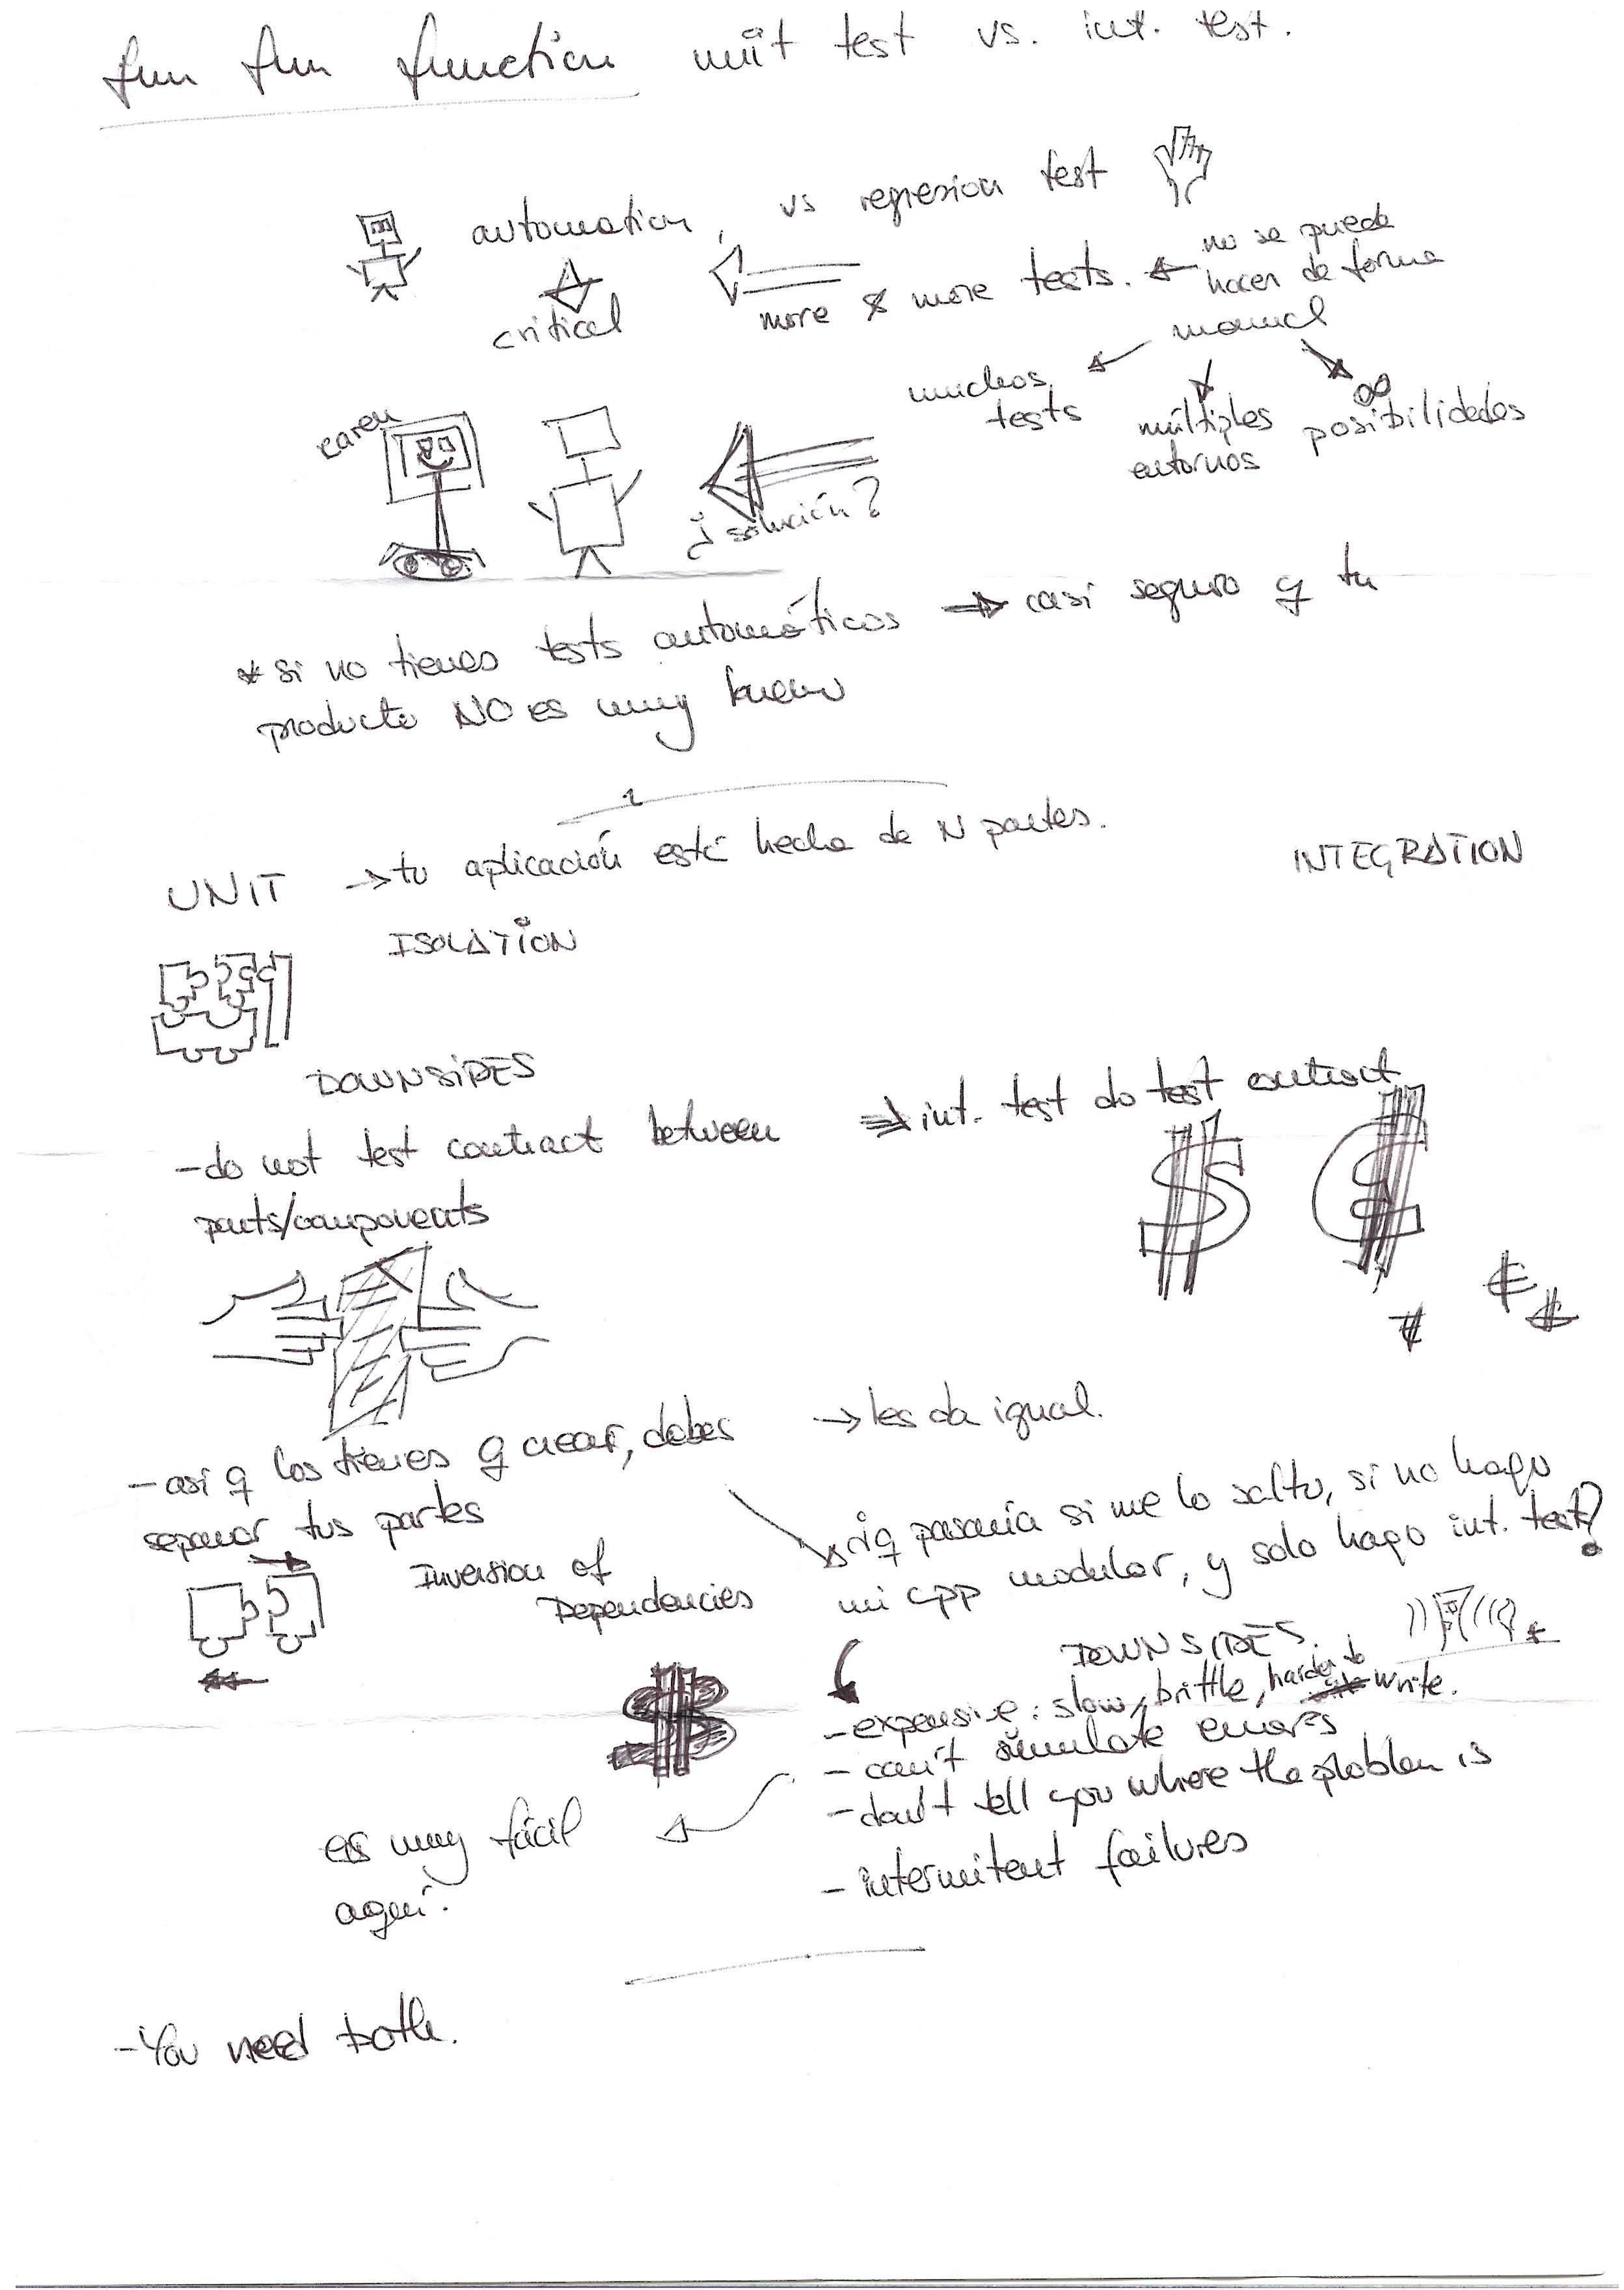 fun fun function unit test vs. int. test.
automation, vs regresion test
critical
more & more tests.
no se puede
hacer de forma
manual
muchos
tests
múltiples
entornos
∞
posibilidades
karen
¿solución?
* si no tienes tests automáticos → casi seguro q tu
producto NO es muy bueno
UNIT → tu aplicación está hecha de N partes.
INTEGRATION
ISOLATION
DOWNSIDES
- do not test contract between
parts/components
⇒ int. test do test contract
$ €
- así q los tienes q crear, debes
separar tus partes
→ les da igual.
Inversion of
Dependencies
¿q pasaría si me lo salto, si no hago
mi app modular, y solo hago int. test?
$
DOWNSIDES
- expensive: slow, brittle, harder to write.
- can't simulate errors
- don't tell you where the problem is
- intermitent failures
es muy fácil
aquí.
- You need both.